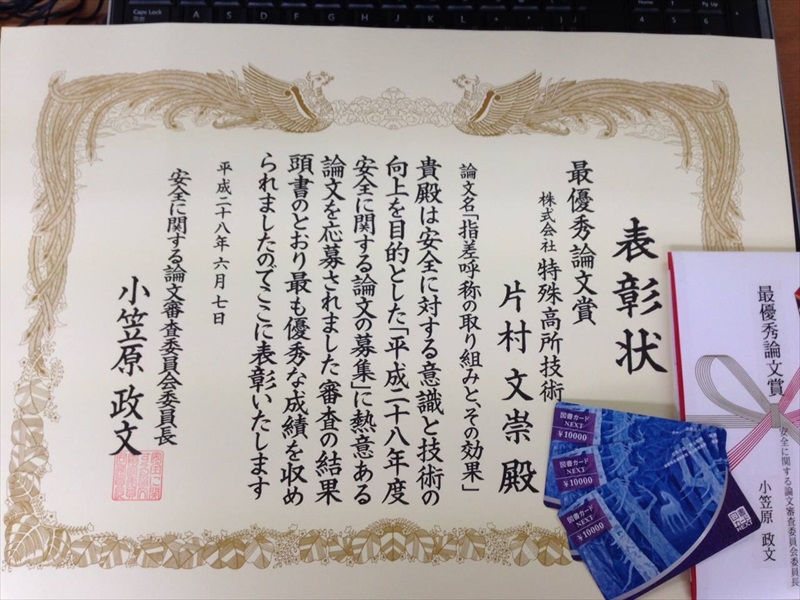 表彰状
最優秀論文賞
株式会社 特殊高所技術
片村文崇 殿
論文名「指差呼称の取り組みと、その効果」
貴殿は安全に対する意識と技術の
向上を目的とした「平成二十八年度
安全に関する論文の募集」に熱意ある
論文を応募されました 審査の結果
頭書のとおり最も優秀な成績を収め
られましたのでここに表彰いたします
平成二十八年六月七日
安全に関する論文審査委員会委員長
小笠原 政文
最優秀論文賞
安全に関する論文審査委員会委員長
小笠原 政文
図書カード
NEXT
¥10000
図書カード
NEXT
¥10000
図書カード
NEXT
¥10000
図書カード
NEXT
Caps Lock